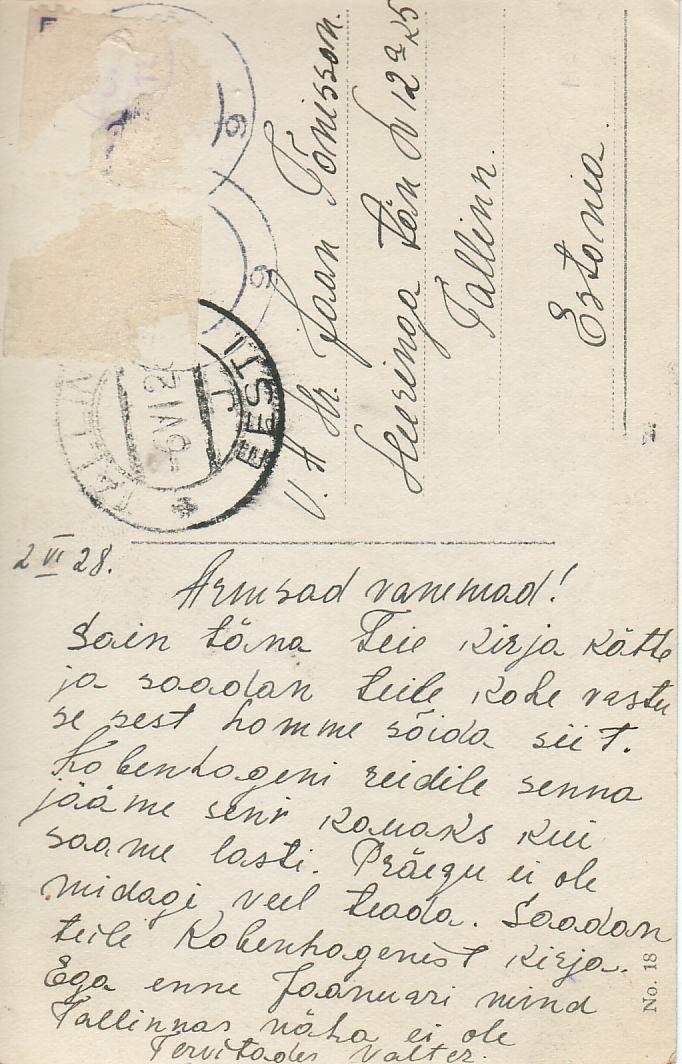 U. A Hr. Jaan Tõnisson.
Heeringa tän N 12a k 5
Tallinn.
Estonia.
6
6
TALLINN
EESTI
No. 18
2 VI 28.
Armsad vanemad!
Sain täna Teie kirja kätte
ja saadan teile kohe vastu
se sest homme sõida siit.
Kobenhageni reidile senna
jääme seni kauaks kui
saame lasti. Präegu ei ole
midagi veel teada. Saadan
teile Kobenhagenist kirja.
Ega enne Jaanuari mind
Tallinnas näha ei ole
Tervitades Valter.